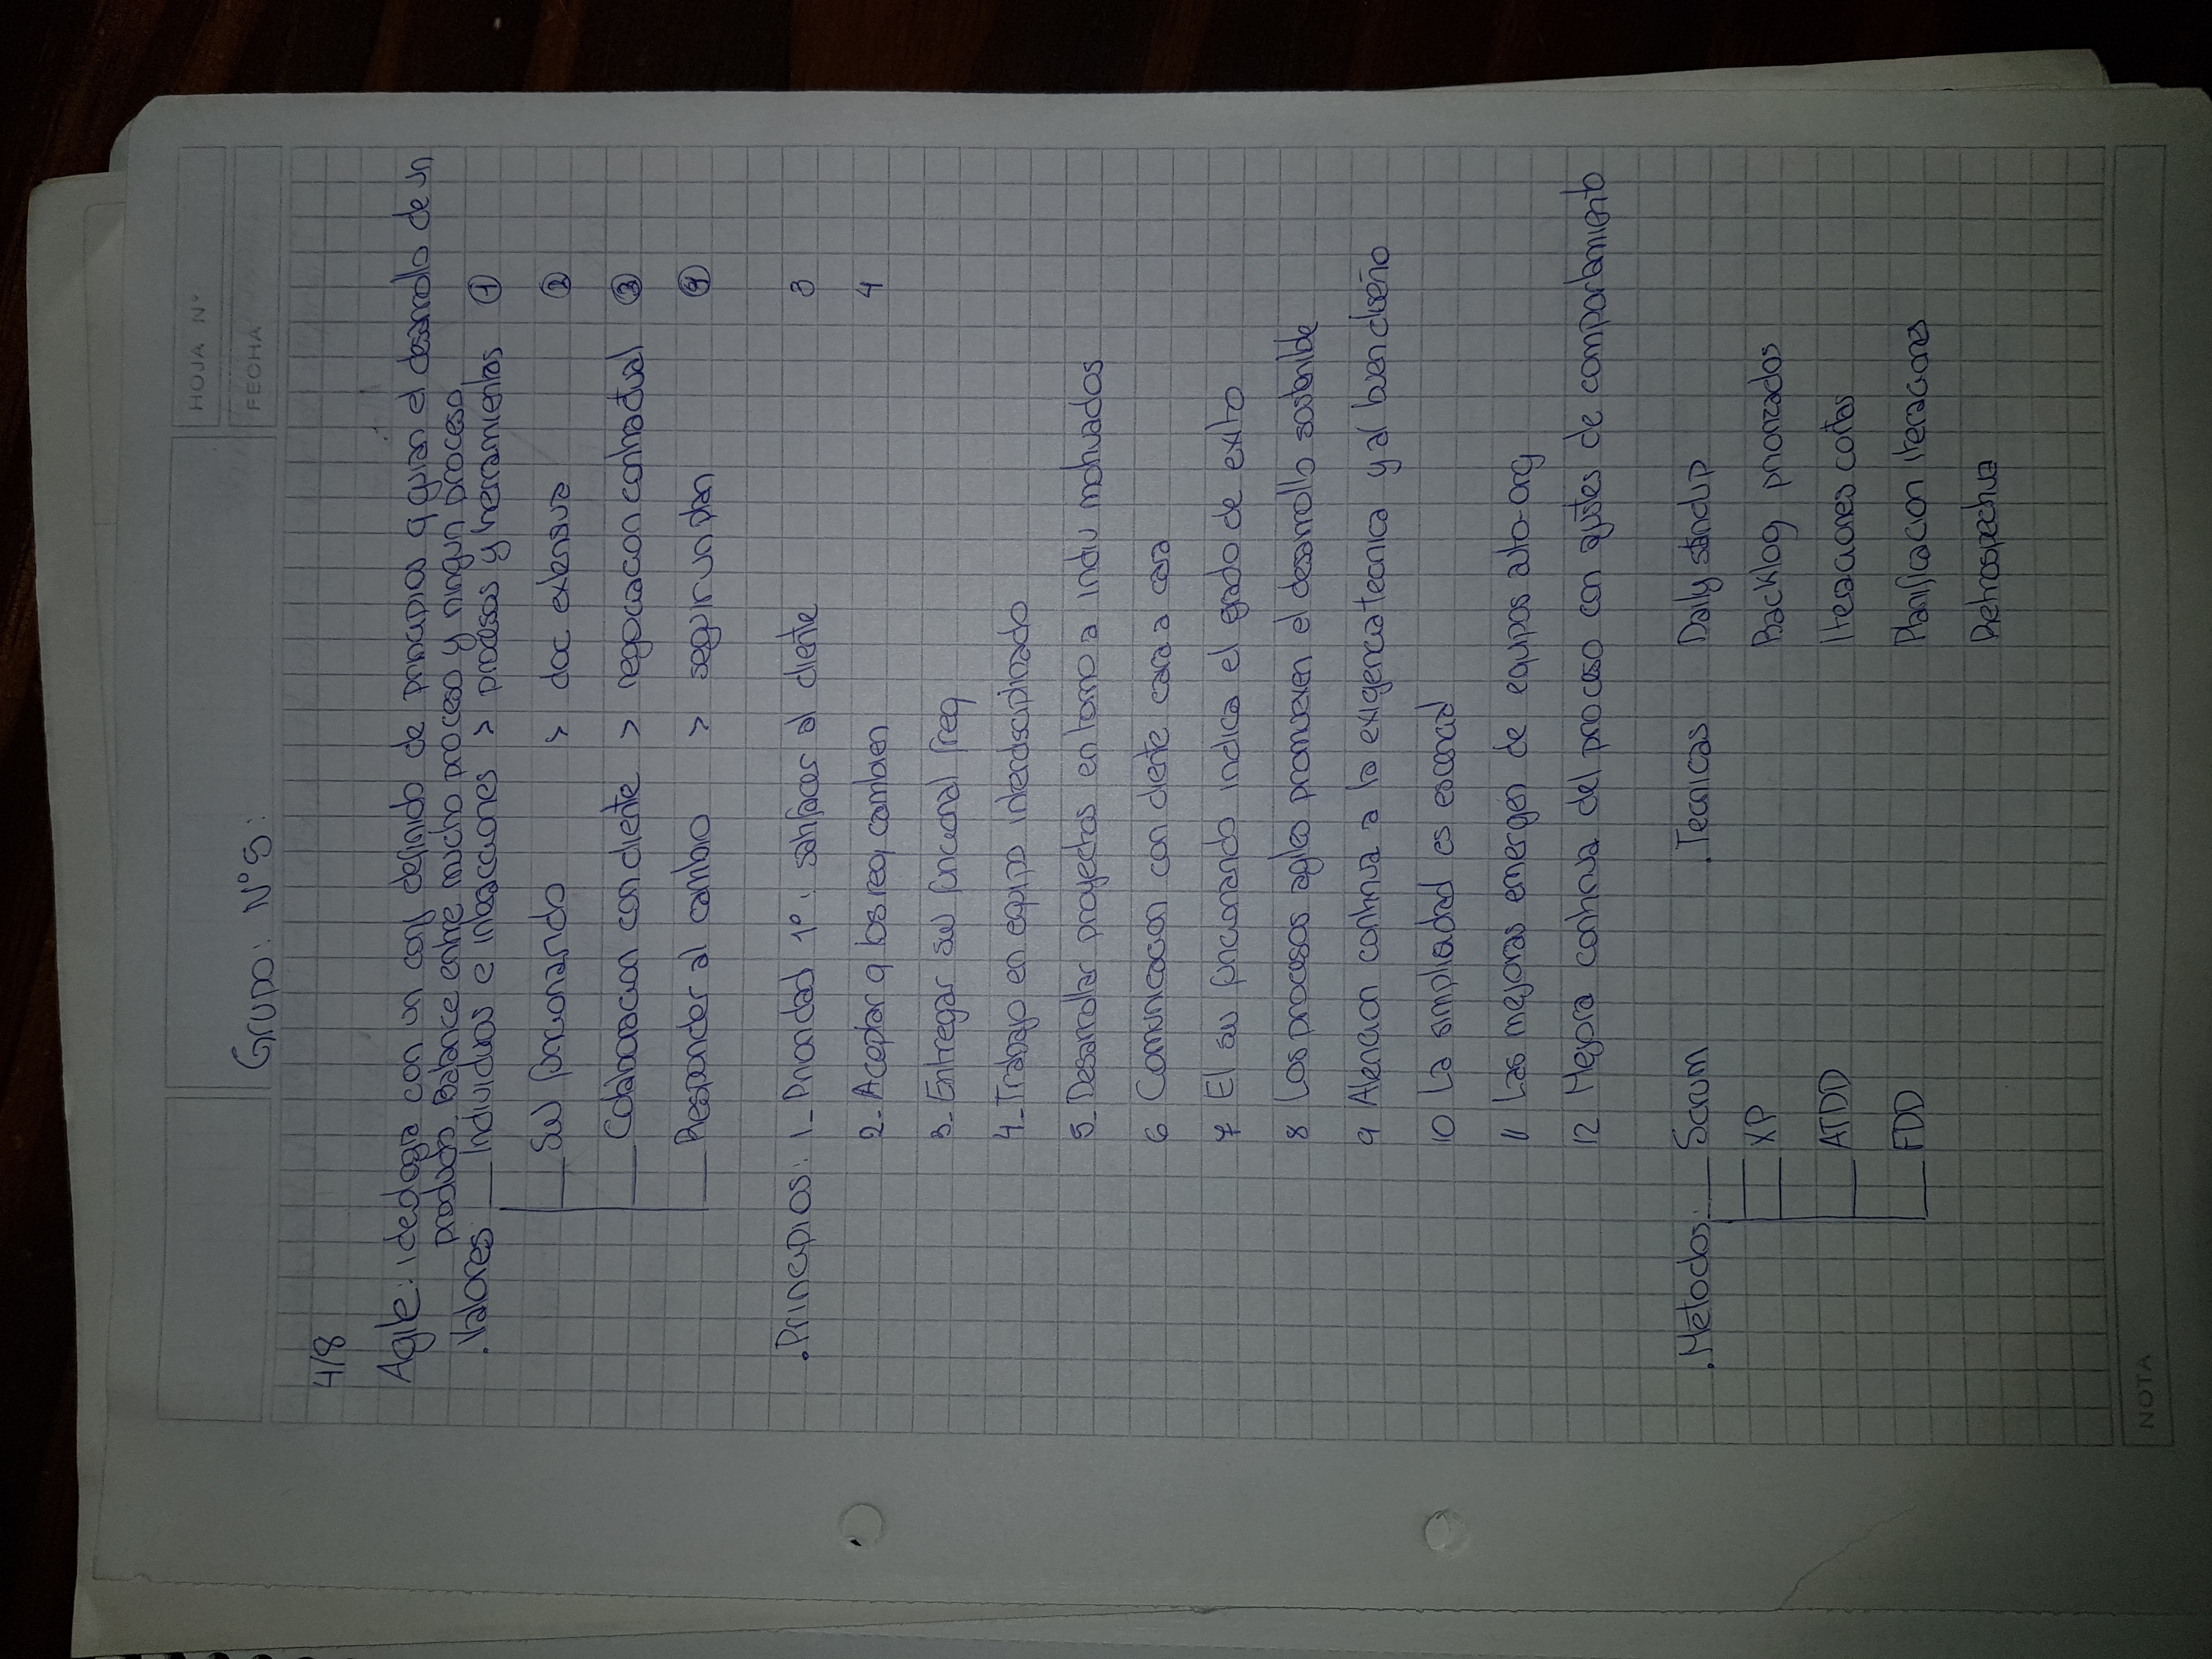 HOJA Nº
FECHA
Grupo: Nº5:
4/8
Agile: ideologia con un conj definido de principios q guian el desarrollo de un
producto. Balance entre mucho proceso y ningun proceso.
. Valores Individuos e interacciones > procesos y herramientas ①
SW funcionando > doc extensiva ②
Colaboracion con cliente > negociacion contractual ③
Responder al cambio > seguir un plan ④
. Principios: 1_ Prioridad 1º: satisfacer al cliente 3
2_ Aceptar q los req cambien 4
3_ Entregar SW funcional freq
4_ Trabajo en equipo interdisciplinado
5_ Desarrollar proyectos en torno a indiv motivados
6 Comunicacion con cliente cara a cara
7 El sw funcionando indica el grado de exito
8 Los procesos agiles promueven el desarrollo sostenible
9 Atencion continua a la exigencia tecnica y al buen diseño
10 La simplicidad es esencial
11 Las mejoras emergen de equipos auto-org
12 Mejora continua del proceso con ajustes de comportamiento
. Metodos: Scrum . Tecnicas Daily standup
XP Backlog priorizados
ATDD Iteraciones cortas
FDD Planificacion iteraciones
Retrospectiva
NOTA